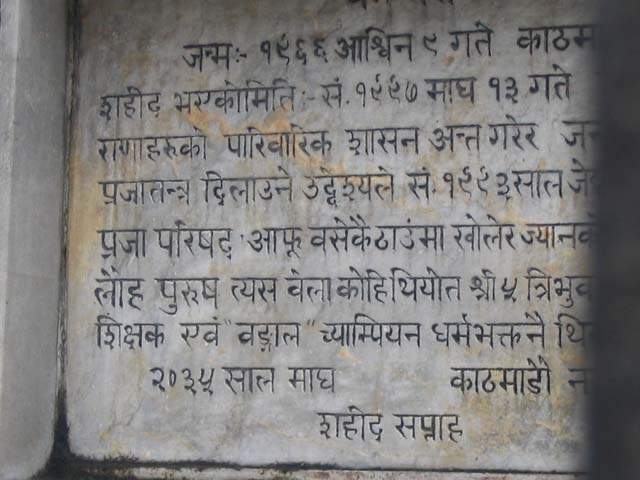 जन्म:- १९६६ आश्विन ९ गते काठमा
शहीद भएकोमिति:- सं. १९९७ माघ १३ गते
राणाहरुको पारिवारिक शासन अन्त गरेर जन
प्रजातन्त्र दिलाउने उद्देश्यले सं. १९९३ साल जे
प्रजा परिषद् आफू वसेकैठाउंमा खोलेर ज्यानको
लौह पुरुष त्यस वेला कोहि थियोत श्री ५ त्रिभुव
शिक्षक एवं "वङ्गाल" च्याम्पियन धर्मभक्तनै थि
२०३५ साल माघ काठमाडौं न
शहीद सप्ताह